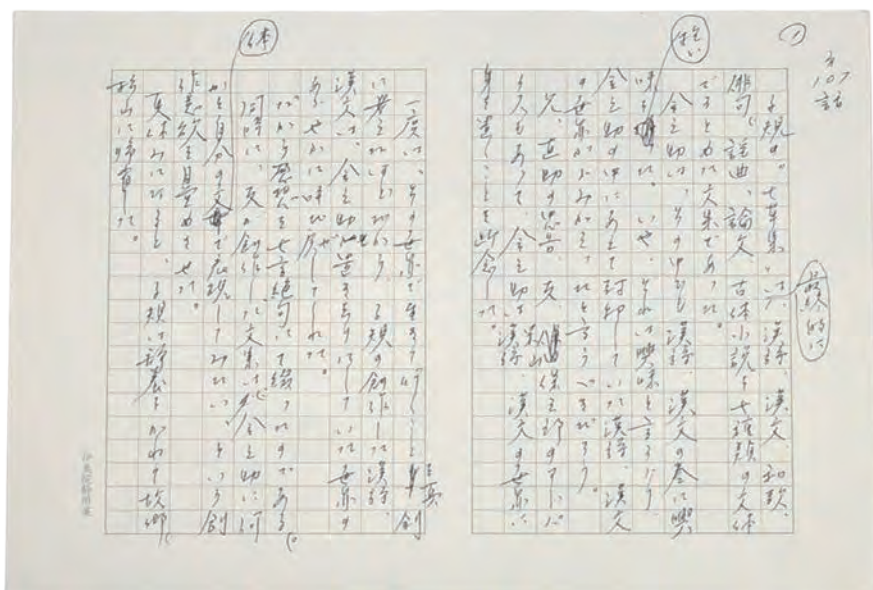 ①
第107話
子規の“七草集”は、漢詩、漢文、和歌、
俳句、謡曲、論文、古体小説と七種類の文体
でまとめた文集であった。
金之助は、その中でも漢詩、漢文の巻に興
味を抱いた。いや、それは興味と言うより、
金之助の中にあえて封印していた漢詩、漢文
の世界がよみがえったと言うべきだろう。
兄、直助の忠告、友、米山保三郎のアドバイ
スもあって、金之助は漢詩、漢文の世界に
身を遣くことを断念した。
最終的に
一度は、その世界で生きて行くことを真剣
に考えたほどだから、子規の創作した漢詩、
漢文は、金之助が遠ざけようとしていた世界の
あざやかに呼び戻してくれた。
だから感想を七言絶句にて綴ったのである。
同時に、友が創作した文集は、金之助に何
かを自分の文体で表現してみたい、という創
作意欲を目覚めさせた。
夏休みになると、子規は静養をかねて故郷、
松山に帰省した。
伊集院静用箋